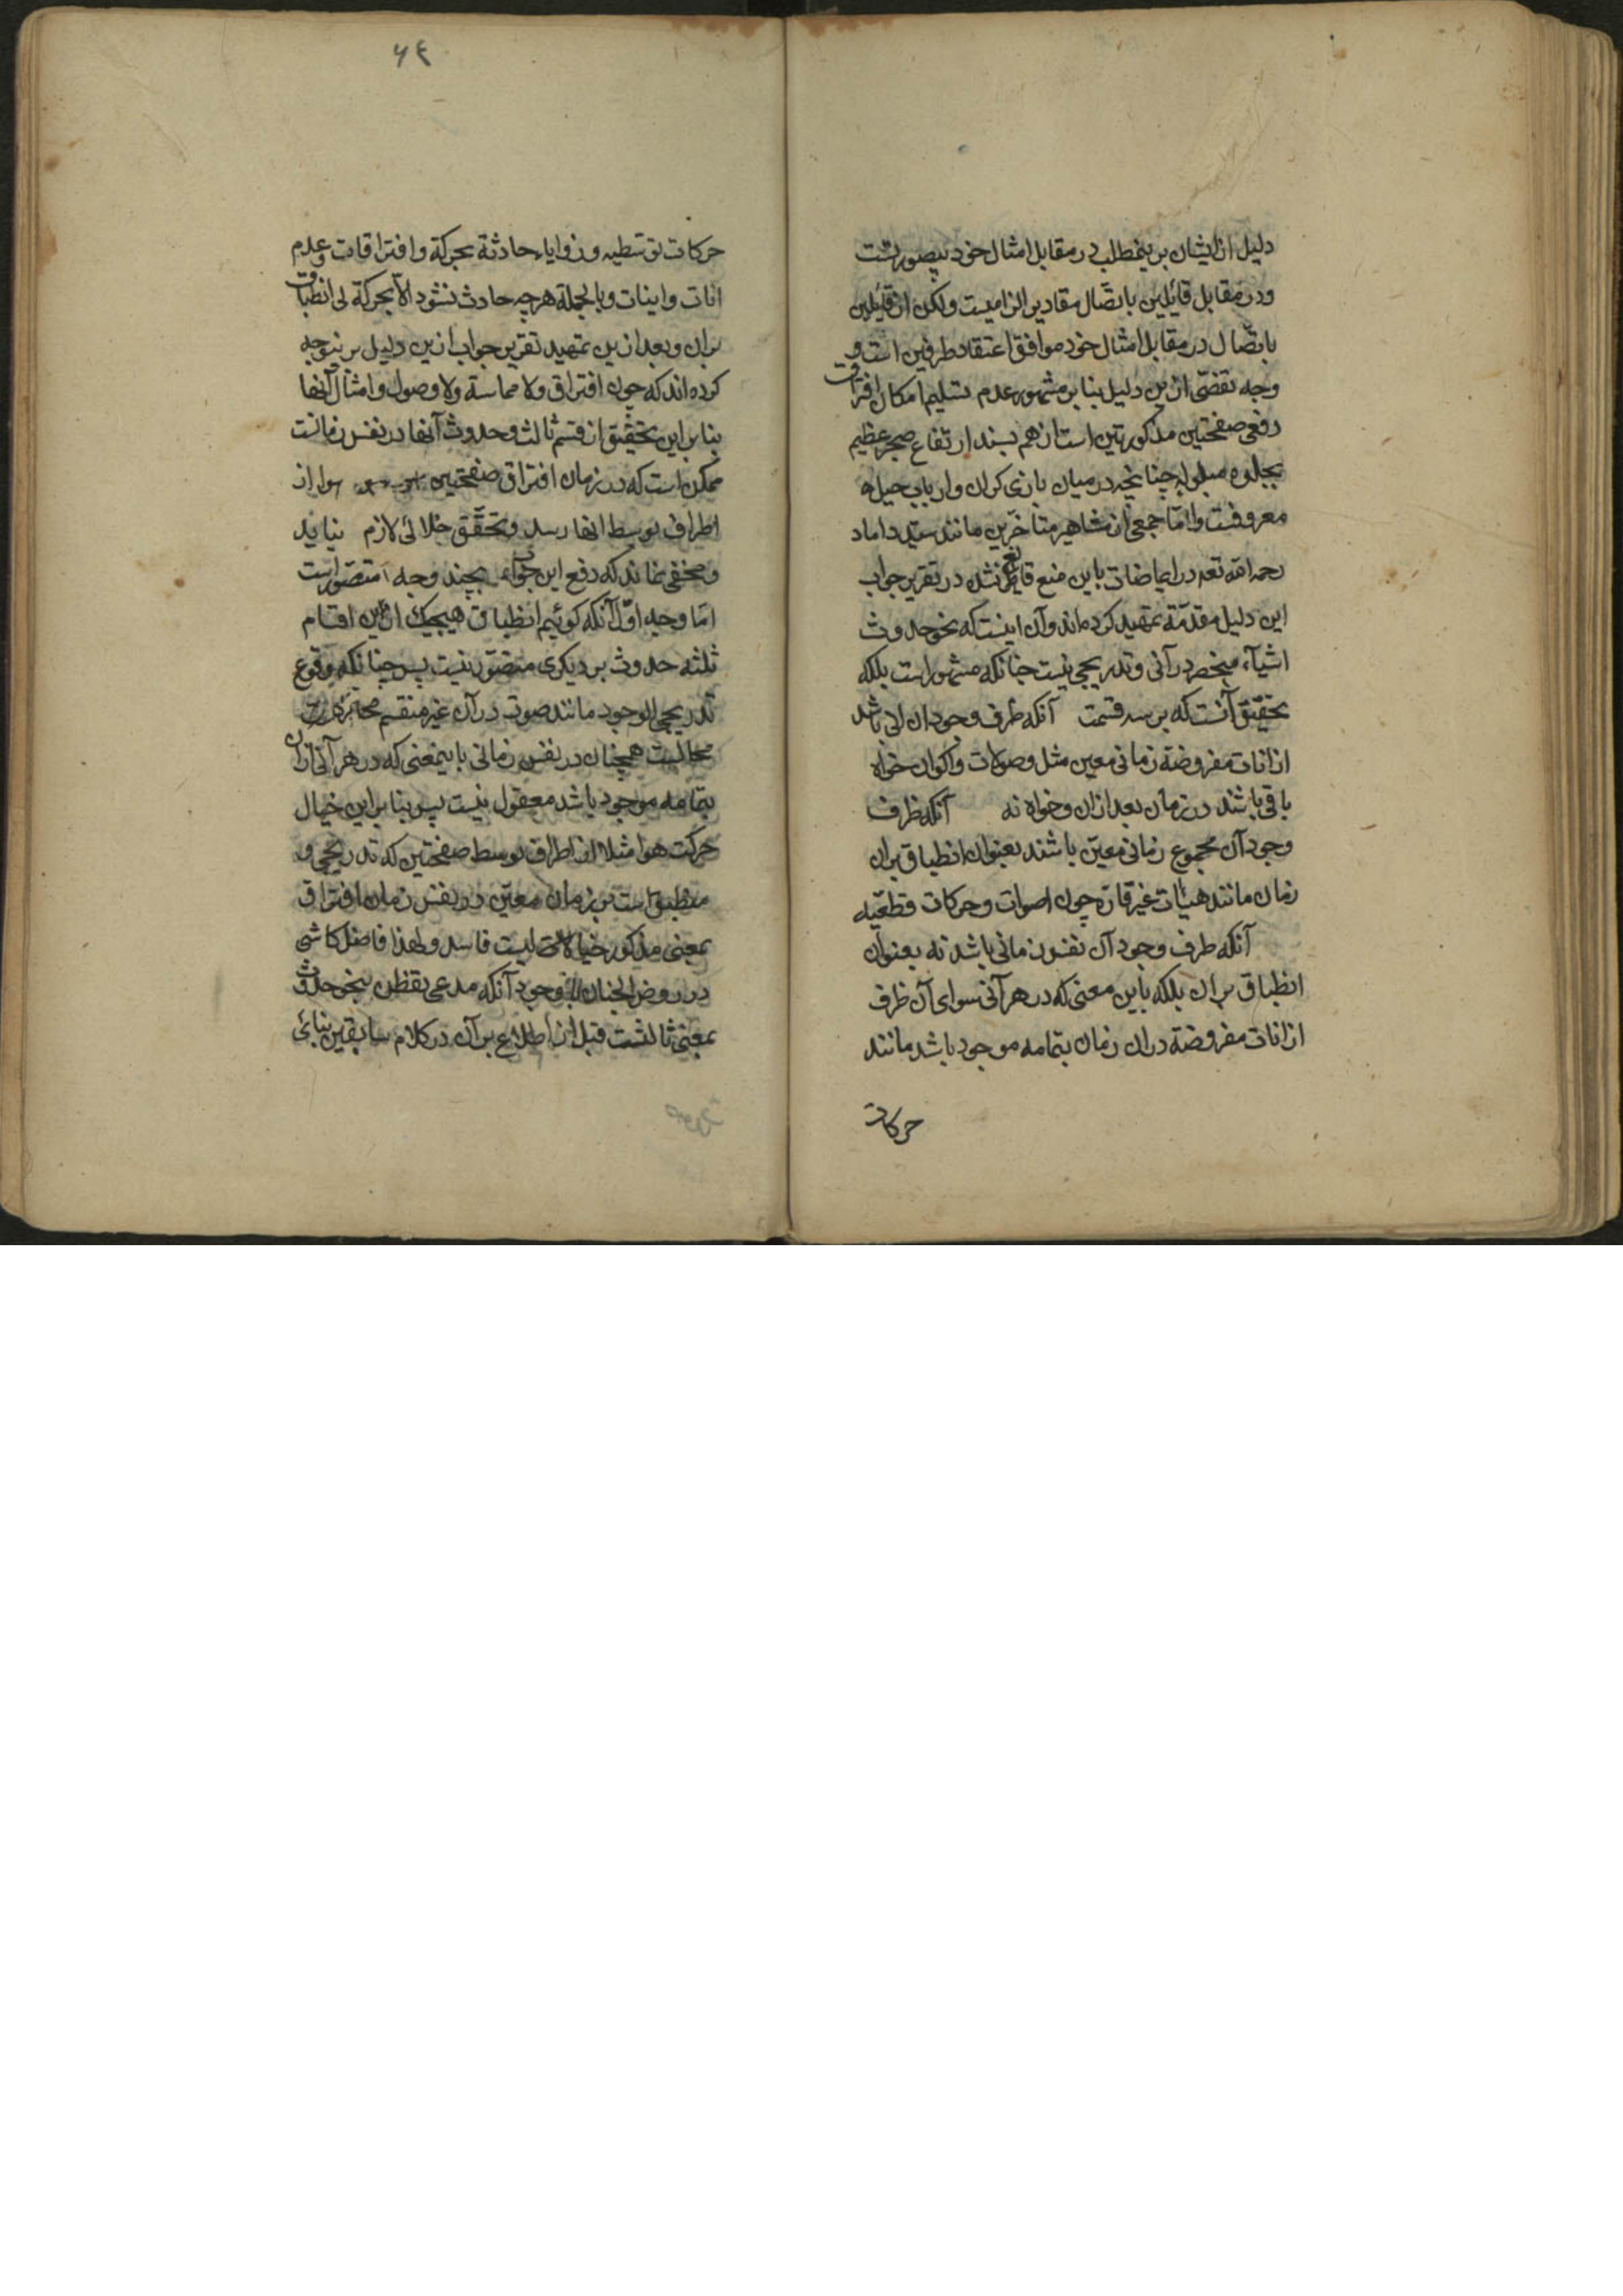 دلیل از ایشان برینمطلب در مقابل امثال خود بیصورتست
و در مقابل قائلین باتصّال مقادیر الزامیست ولکن از قائلین
باتصّال در مقابل امثال خود موافق اعتقاد طرفین است و
وجه تفصّی ازین دلیل بنا بر مشهور عدم تسلیم امکان افتراق
دفعی صفحتین مذکورتین است از هم بسند ارتفاع صخر عظیم
چنانچه در میان بازی کران وارباب حیل
معروفست وامّا جمعی از مشاهیر متاخّرین مانند سیّد داماد
رحمه الله تعه در ایماضات باین منع قایل نشده در تقریر جواب
این دلیل مقدّمة تمهید کرده اند وآن اینست که نحو حدوث
اشیآء منحصر در آنی وتدریجی نیست چنانکه مشهور است بلکه
تحقیق آنست که بر سه قسمت آنکه ظرف وجود ان انی باشد
از انات مفروضة زمانی معین مثل وصولات واکوان خواه
باقی باشند در زمان بعد ازان وخواه نه آنکه ظرف
وجود آن مجموع زمانی معیّن باشند بعنوان انطباق بران
زمان مانند هیئات غیر قارّه چون اصوات وحرکات قطعّیه
آنکه ظرف وجود آن نفس زمانی باشد نه بعنوان
انطباق بران بلکه باین معنی که در هر آنی سوای آن ظرف
از انات مفروضة در ان زمان بتمامه موجود باشد مانند
حرکات
۶۴
حرکات توسّطیه وزوایاء حادثة بحرکة وافتراقات وعدم
انات واینات وبالجملة هرچه حادث نشود الّا بحرکة لی انطباق
بران وبعد ازین تمهید تقریر جواب ازین دلیل برینوجه
کرده اند که چون افتراق ولا مماسة ولا وصول وامثال آنها
بنا براین تحقیق از قسم ثالث وحدوث آنها در نفس زمانست
ممکن است که در زمان افتراق صفحتین هوا از
اطراف بوسط انها رسد وتحقّق خلائی لازم نیاید
ومخفی نماند که دفع این جواب بچند وجه متصوّر است
امّا وجه اوّل آنکه کوئیم انطباق هیچیک ازین اقسام
ثلثه حدوث بر دیکری متصوّر نیست پس چنانکه وقوع
تدریجی الوجود مانند صوت در آن غیر منقسم
محالیست همچنان در نفس زمانی باینمعنی که در هر آنی ازان
بتمامه موجود باشد معقول نیست پس بنا براین خیال
حرکت هوا مثلا از اطراف بوسط صفحتین که تدریجی و
منطبق است بر زمان معیّن در نفس زمان افتراق
بمعنی مذکور خیال فاسد ولهذا فاضل کاشی
در روض الجنان با وجود آنکه مدعی تفطّن بنحو حدوث
بمعنی ثالثست قبل از اطلاع بر آن در کلام سابقین بنابی